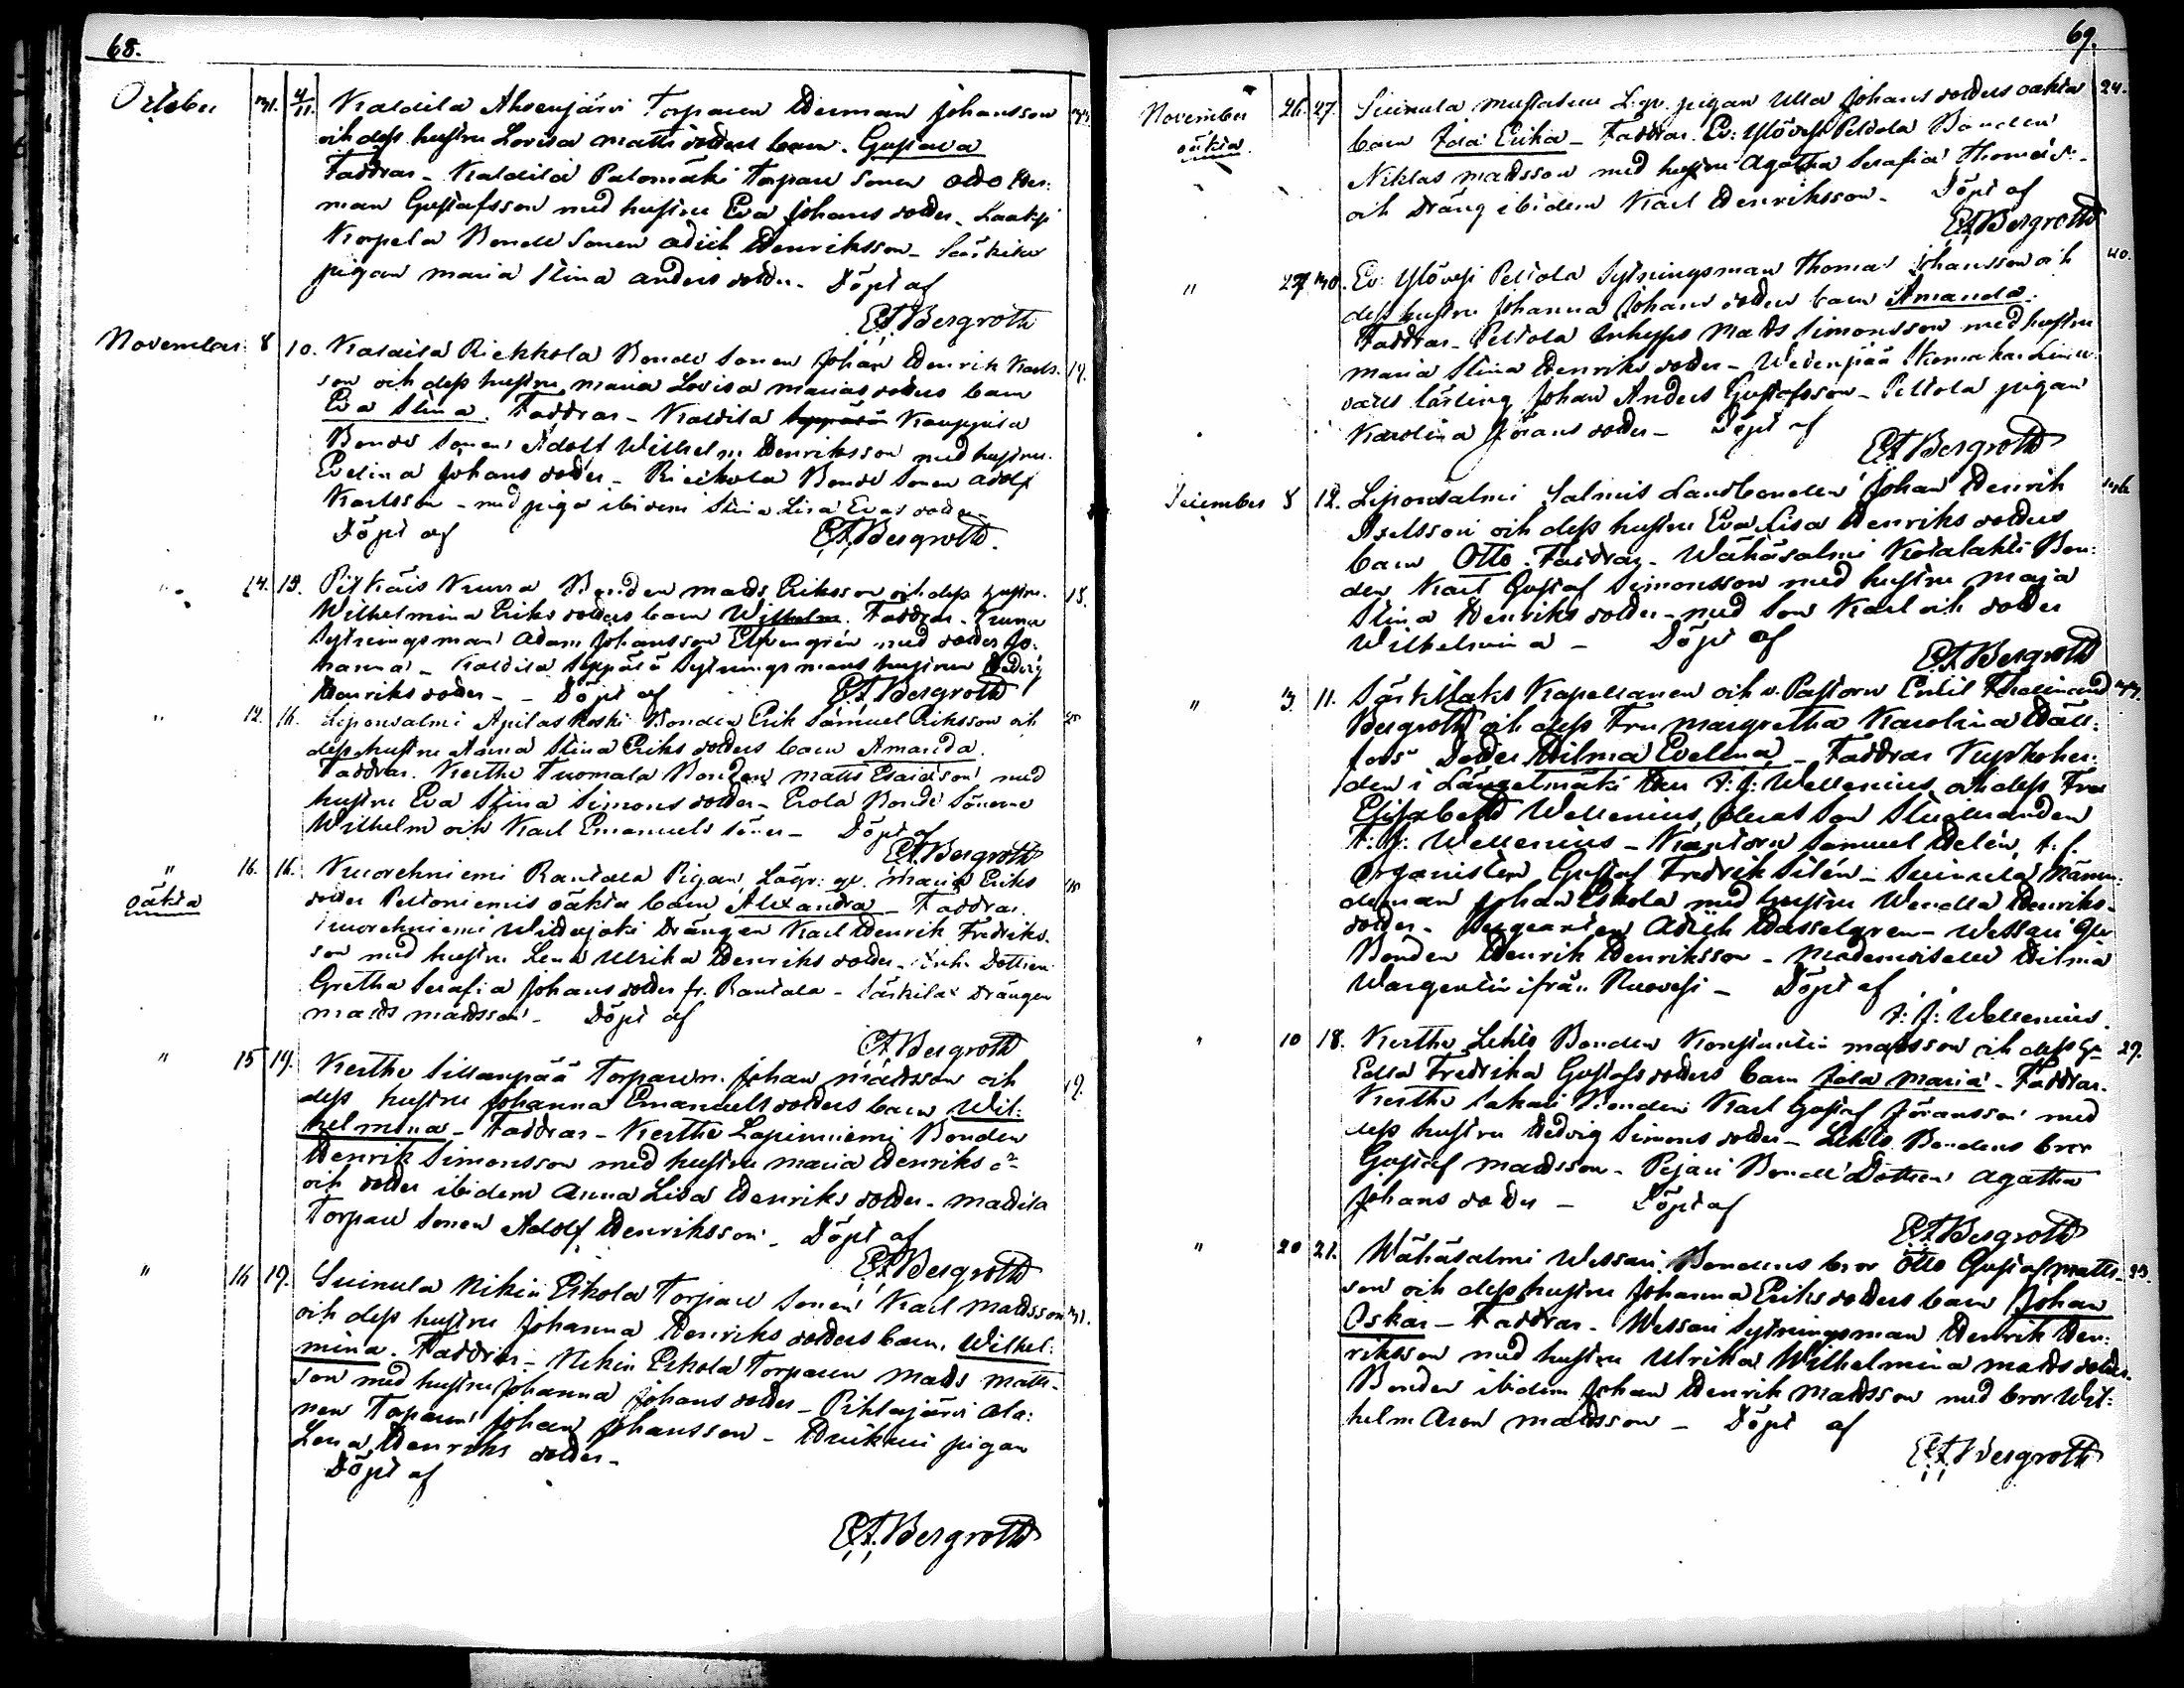 68.
October 31. 4/11. Kaldila Ahvenjärvi Torparen Herman Johansson
och dess hustru Lovisa Matts dotters barn. Gustava
Faddrar - Kaldila Palomäki Torpare Sonen Otto Her:
man Gustafsson med hustru Eva Johans dotter -
Korpela Bonde Sonen Adich Henriksson - Särkilax
pigan Maria Stina Anders dotter. Döpt af
E.F. Bergroth
November 8 10. Kaldila Riekkola Bonde Sonen Johan Henrik Karls-
son och dess hustru Maria Lovisa Marias dotters barn
Eva Stina. Faddrar - Kaldila Seppälä Kauppila
Bonde Sonen Adolf Wilhelm Henriksson med hustru
Evelina Johans dotter - Rieckola Bonde Sonen Adolf
Karlsson - med piga ibidem Stina Lisa Evas dotter
Döpt af E.F. Bergroth.
" 14. 15. Pitkäis Kurra Bonden Mads Eriksson och dess hustru
Wilhelmina Eriks dotters barn Wilhelm. Faddrar - Kurra
Sytningsman Adam Johansson Elfvengrén med dotter Jo:
hanna - Kaldila Seppälä Sytningsmans hustrun Hedvig
Henriks dotter - - Döpt af E.F. Bergroth
" 12. 16. Liponsalmi Apilaskoski Bonden Erik Samuel Eriksson och
dess hustru Anna Stina Eriks dotters barn Amanda.
Faddrar. Kerthe Tuomala Bonden Matts Esaiasson med
hustru Eva Stina Simons dotter - Erola Bonde Sönerne
Wilhelm och Karl Emanuels söner - Döpt af
E.F. Bergroth
" oäkta 16. 16. Kuorehniemi Rantala Pigan Lägr: qv. Maria Eriks
dotter Peltoniemis oäkta barn Alexandra - Faddrar.
Kuorehniemi Widajoki Drängen Karl Henrik Fredriks-
son med hustru Lena Ulrika Henriks dotter - Dottren
Gretha Serafia Johans dotter fr. Rantala - Särkilax Drängen
Mads Madsson - Döpt af
E.F. Bergroth
" 15 19. Kerthe Sillanpää Torparen Johan Madsson och
dess hustru Johanna Emanuels dotters barn Wil:
helmina - Faddrar - Kerthe Lapinniemi Bonden
Henrik Simonsson med hustru Maria Henriks
och dotter ibidem Anna Lisa Henriks dotter - Madila
Torpare Sonen Adolf Henriksson - Döpt af
E.F. Bergroth
" 16 19. Suinula Nikin Eskola Torpare Sonen Karl Madsson 31.
och dess hustru Johanna Henriks dotters barn. Wilhel:
mina. Faddrar - Nikin Eskola Torparen Mads Matts-
son med hustru Johanna Johans dotter - Pihlajärvi Ala:
nen Torparen Johan Johansson - pigan
Lena Henriks dotter -
Döpt af
E.F. Bergroth
69.
November oäkta 26. 27. Suinula Mustalem L. qv. pigan Ulla Johans dotters oäkta 24.
barn Ida Erika - Faddrar. Ev: Ylövesi Peltola Bonden
Niklas Madsson med hustru Agatha Serafia Thomas-
och Dräng ibidem Karl Henriksson - Döpt af
E.F. Bergroth
" 27 30. Ev: Ylövesi Peltola Sytningsman Thomas Johansson och 40.
dess hustru Johanna Johans dotters barn Amanda.
Faddrar - Peltola Inhyses Mads Simonsson med hustru
Maria Stina Henriks dotter - Wedenpää Skomakar
lärling Johan Anders Gustafsson - Peltola pigan
Karolina Jörans dotter - Döpt af
E.F. Bergroth
December 8 12. Liponsalmi Salmis Landbonden Johan Henrik
Axelsson och dess hustru Eva Lisa Henriks dotters
barn Otto. Faddrar - Wähäsalmi Kotalahti Bon:
den Karl Gustaf Simonsson med hustru Maja
Stina Henriks dotter - med Son Karl och dotter
Wilhelmina - Döpt af
E.F. Bergroth
" 3 11. Särkilaks Kapellanen och v. Pastorn Emil Ferdinand
Bergroth och dess Fru Margretha Karolina Häll:
fors Dotter Hilma Evelina - Faddrar Kyrkoher:
den i Längelmäki Herr F: J: Wellenius och dess Fru
Elisabeth Wellenius, deras Son Studeranden
F. J. Wellenius - Kantorn Samuel Helén, t. f.
Organisten Gustaf Fredrik Silén - Suinula Nämn:
deman Johan Eskola med hustru Wendla Henriks-
dotter - Sergeanten Adich Hasselgren - Wessari
Bonden Henrik Henriksson - Mademoiselle Hilma
Wargentin ifrån Ruovesi - Döpt af
F: J: Wellenius.
" 10 18. Kerthe Lehto Bonden Konstantin Madsson och dess 29.
Edla Fredrika Gustafs dotters barn Ida Maria - Faddrar.
Kerthe Sakari Bonden Karl Gustaf Jöransson med
dess hustru Hedvig Simons dotter - Lehto Bondens bror
Gustaf Madsson - Pejari Bonde Dottren Agatha
Johans dotter - Döpt af
E.F. Bergroth
" 20 21. Wähäsalmi Wessari Bondens bror Otto Gustaf Matts- 33.
son och dess hustru Johanna Eriks dotters barn Johan
Oskar - Faddrar - Wessari Sytningsman Henrik Hen:
riksson med hustru Ulrika Wilhelmina Mads dotter -
Bonden ibidem Johan Henrik Madsson med bror Wil:
helm Aron Madsson - Döpt af
E.F. Bergroth